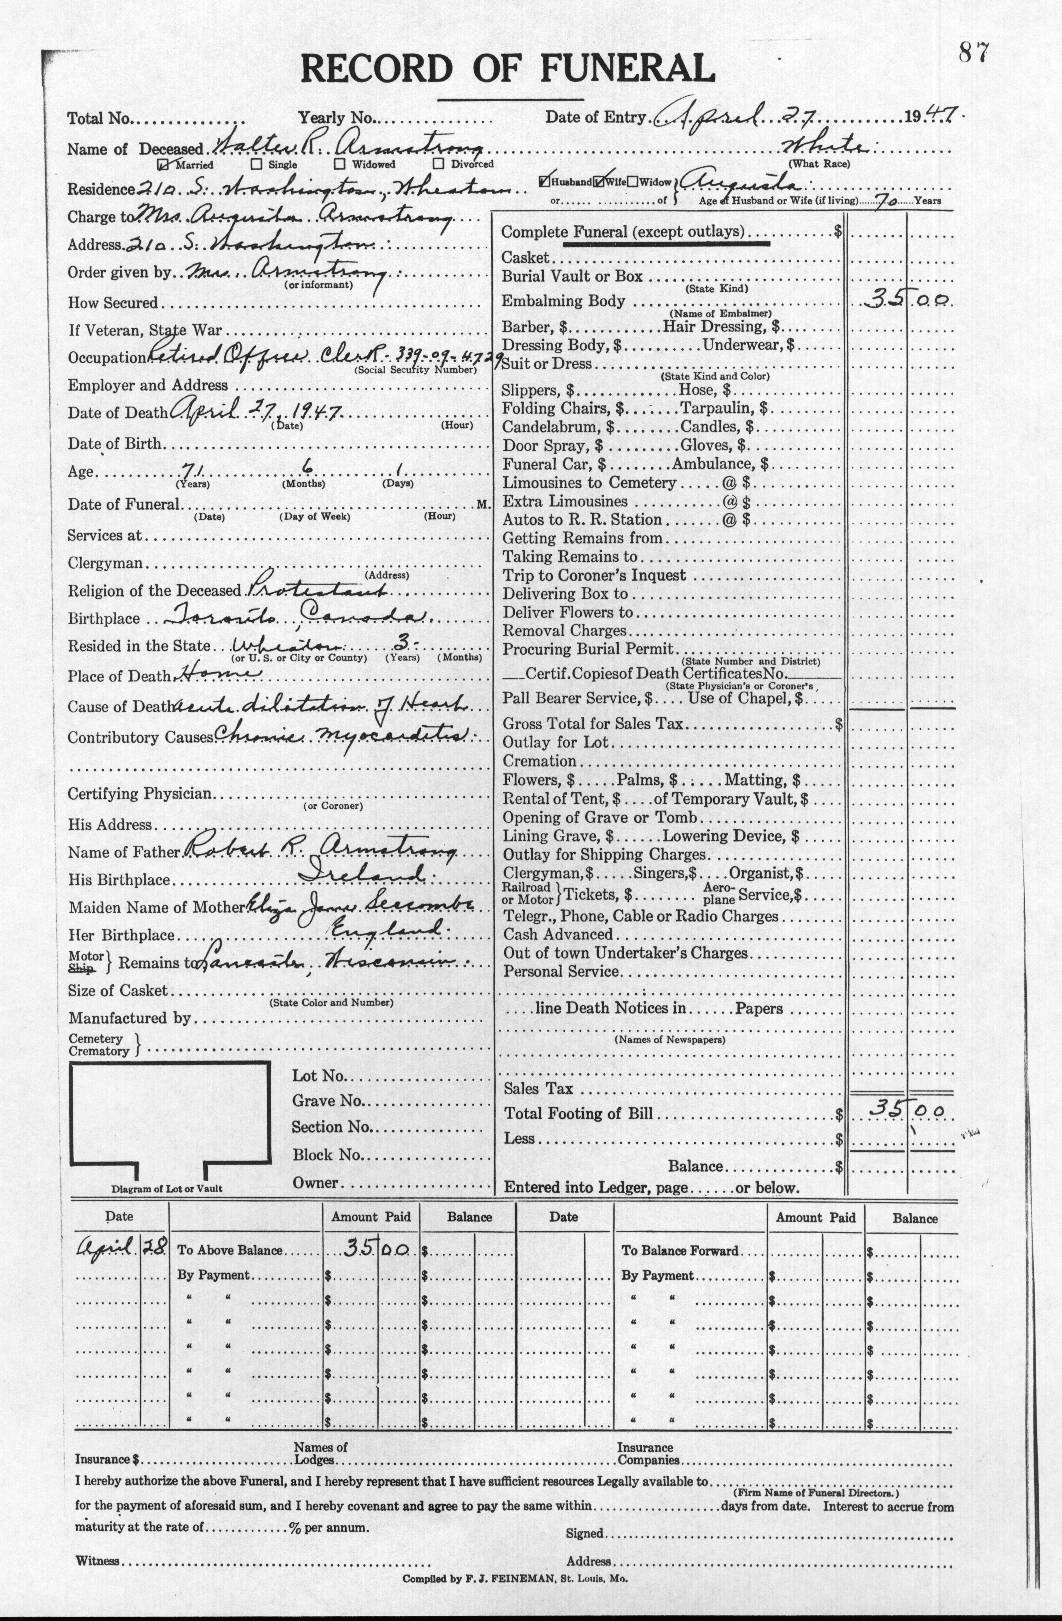 87
RECORD OF FUNERAL
Total No............... Yearly No............... Date of Entry. April 27 1947.
Name of Deceased Walter R. Armstrong White
☑ Married ☐ Single ☐ Widowed ☐ Divorced (What Race)
Residence 210 S. Washington, Wheaton ☑Husband☑Wife☐Widow } Augusta
or...... ............of } Age of Husband or Wife (if living) 70 Years
Charge to Mrs. Augusta Armstrong
Address 210 S. Washington
Order given by Mrs. Armstrong
(or informant)
How Secured
If Veteran, State War
Occupation Retired Office Clerk - 339-09-4729
(Social Security Number)
Employer and Address
Date of Death April 27, 1947
(Date) (Hour)
Date of Birth
Age 71 6 1
(Years) (Months) (Days)
Date of Funeral M.
(Date) (Day of Week) (Hour)
Services at
Clergyman
(Address)
Religion of the Deceased Protestant
Birthplace Toronto, Canada
Resided in the State Wheaton 3
(or U. S. or City or County) (Years) (Months)
Place of Death Home
Cause of Death acute dilitation of Heart
Contributory Causes Chronic myocarditis
Certifying Physician
(or Coroner)
His Address
Name of Father Robert R. Armstrong
His Birthplace Ireland
Maiden Name of Mother Eliza Jane Seccombe
Her Birthplace England
Motor Ship } Remains to Lancaster, Wisconsin
Size of Casket
(State Color and Number)
Manufactured by
Cemetery Crematory }
Lot No.
Grave No.
Section No.
Block No.
Owner
Diagram of Lot or Vault
Complete Funeral (except outlays) $
Casket
Burial Vault or Box
(State Kind)
Embalming Body 35 00
(Name of Embalmer)
Barber, $ Hair Dressing, $
Dressing Body, $ Underwear, $
Suit or Dress
(State Kind and Color)
Slippers, $ Hose, $
Folding Chairs, $ Tarpaulin, $
Candelabrum, $ Candles, $
Door Spray, $ Gloves, $
Funeral Car, $ Ambulance, $
Limousines to Cemetery @ $
Extra Limousines @ $
Autos to R. R. Station @ $
Getting Remains from
Taking Remains to
Trip to Coroner's Inquest
Delivering Box to
Deliver Flowers to
Removal Charges
Procuring Burial Permit
(State Number and District)
Certif. Copies of Death Certificates No.
(State Physician's or Coroner's
Pall Bearer Service, $ Use of Chapel, $
Gross Total for Sales Tax $
Outlay for Lot
Cremation
Flowers, $ Palms, $ Matting, $
Rental of Tent, $ of Temporary Vault, $
Opening of Grave or Tomb
Lining Grave, $ Lowering Device, $
Outlay for Shipping Charges
Clergyman, $ Singers, $ Organist, $
Railroad or Motor } Tickets, $ Aero-plane Service, $
Telegr., Phone, Cable or Radio Charges
Cash Advanced
Out of town Undertaker's Charges
Personal Service
line Death Notices in Papers
(Names of Newspapers)
Sales Tax
Total Footing of Bill $ 35 00
Less $
Balance $
Entered into Ledger, page......or below.
Date Amount Paid Balance Date Amount Paid Balance
April 28 To Above Balance 35 00 $ To Balance Forward $
By Payment $ $ By Payment $ $
" " $ $ " " $ $
" " $ $ " " $ $
" " $ $ " " $ $
" " $ $ " " $ $
" " $ $ " " $ $
" " $ $ " " $ $
Insurance $ Names of Lodges Insurance Companies
I hereby authorize the above Funeral, and I hereby represent that I have sufficient resources Legally available to
(Firm Name of Funeral Directors.)
for the payment of aforesaid sum, and I hereby covenant and agree to pay the same within days from date. Interest to accrue from
maturity at the rate of % per annum.
Signed
Witness Address
Compiled by F. J. FEINEMAN, St. Louis, Mo.